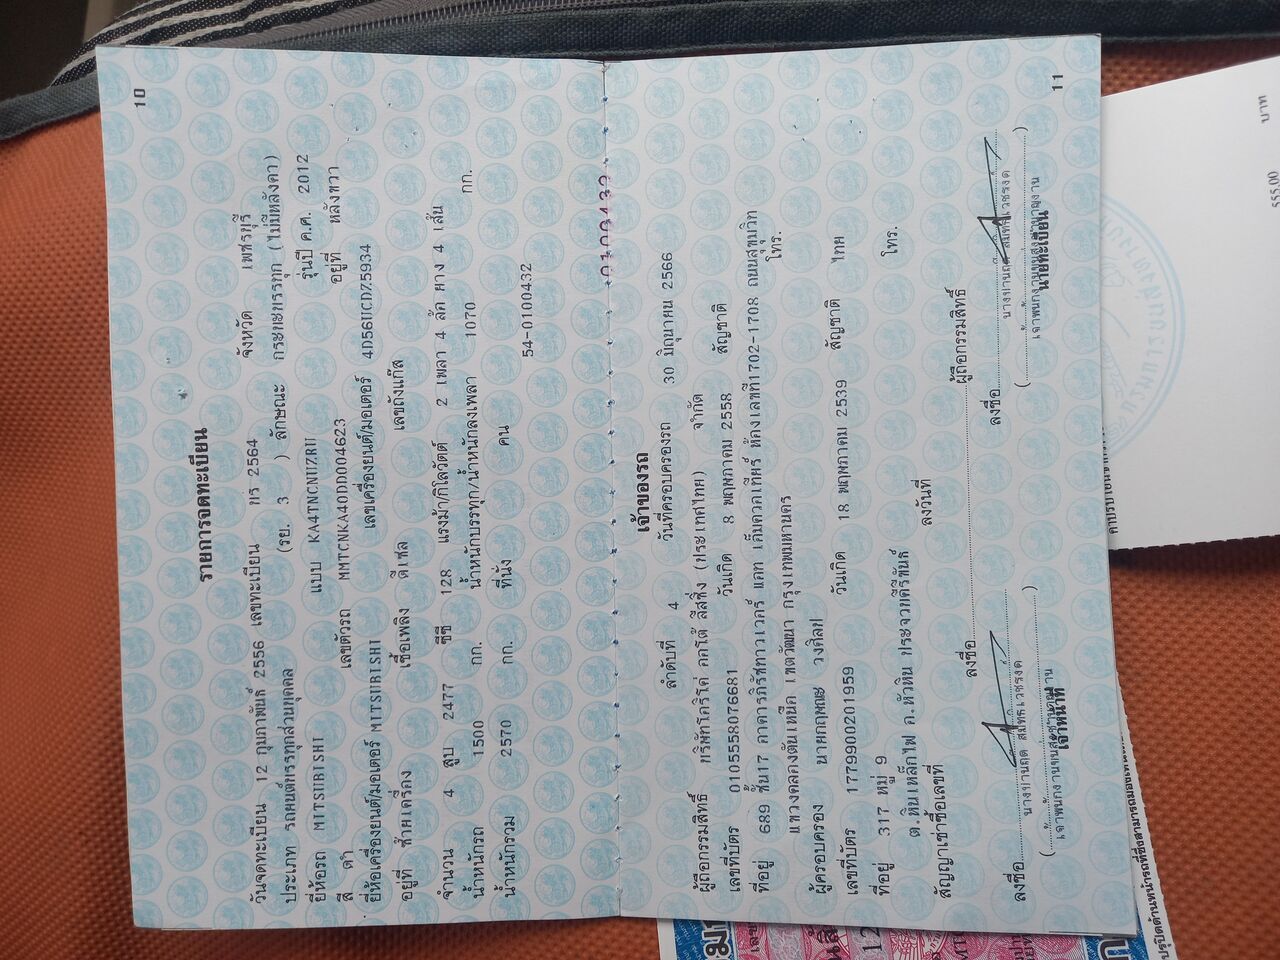 10
รายการจดทะเบียน
วันจดทะเบียน 12 กุมภาพันธ์ 2556 เลขทะเบียน บร 2564 จังหวัด เพชรบุรี
ประเภท รถยนต์บรรทุกส่วนบุคคล (รย. 3 ) ลักษณะ กระบะบรรทุก (ไม่มีหลังคา)
ยี่ห้อรถ MITSUBISHI แบบ KA4TNCNUZRU รุ่นปี ค.ศ. 2012
สี ดำ เลขตัวรถ MMTCNKA40DD004623 อยู่ที่ หลังขวา
ยี่ห้อเครื่องยนต์/มอเตอร์ MITSUBISHI เลขเครื่องยนต์/มอเตอร์ 4D56UCDZ5934
อยู่ที่ ซ้ายเครื่อง เชื้อเพลิง ดีเซล เลขถังแก๊ส
จำนวน 4 สูบ 2477 ซีซี 128 แรงม้า/กิโลวัตต์ 2 เพลา 4 ล้อ ยาง 4 เส้น
น้ำหนักรถ 1500 กก. น้ำหนักบรรทุก/น้ำหนักลงเพลา 1070 กก.
น้ำหนักรวม 2570 กก. ที่นั่ง คน
54-0100432
เจ้าของรถ
ลำดับที่ 4 วันที่ครอบครองรถ 30 มิถุนายน 2566
ผู้ถือกรรมสิทธิ์ บริษัทโตริโค่ ออโต้ ลีสซิ่ง (ประเทศไทย) จำกัด
เลขที่บัตร 0105558076681 วันเกิด 8 พฤษภาคม 2558 สัญชาติ
ที่อยู่ 689 ชั้น17 อาคารภิรัชทาวเวอร์ แอท เอ็มควอเทียร์ ห้องเลขที่1702-1708 ถนนสุขุมวิท
แขวงคลองตันเหนือ เขตวัฒนา กรุงเทพมหานคร โทร.
ผู้ครอบครอง นายกฤษณะ วงศิลป
เลขที่บัตร 1779900201959 วันเกิด 18 พฤษภาคม 2539 สัญชาติ ไทย
ที่อยู่ 317 หมู่ 9 โทร.
ต.หินเหล็กไฟ อ.หัวหิน ประจวบคีรีขันธ์
สัญญาเช่าซื้อเลขที่ ลงวันที่
ลงชื่อ ผู้ถือกรรมสิทธิ์
ลงชื่อ ลงชื่อ
เจ้าพนักงานขนส่งชำนาญงาน เจ้าพนักงานขนส่งชำนาญงาน
เจ้าหน้าที่ นายทะเบียน
11
555.00 บาท